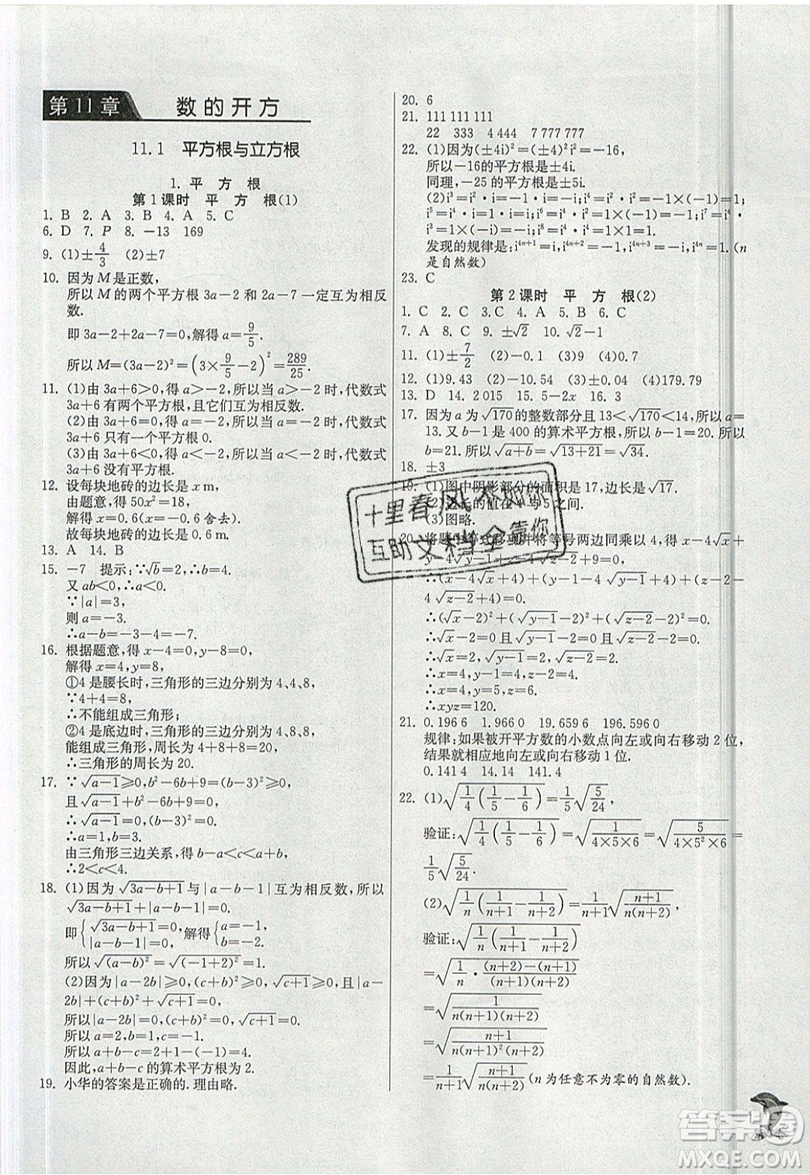 第11章 数的开方
11.1 平方根与立方根
1. 平 方 根
第1课时 平 方 根(1)
1. B 2. A 3. B 4. A 5. C
6. D 7. P 8. -13 169
9. (1)±4/3 (2)±7
10. 因为M是正数,
所以M的两个平方根3a-2和2a-7一定互为相反
数.
即3a-2+2a-7=0,解得a=9/5.
所以M=(3a-2)²=(3×9/5-2)²=289/25.
11. (1)由3a+6>0,得a>-2,所以当a>-2时,代数式
3a+6有两个平方根,且它们互为相反数.
(2)由3a+6=0,得a=-2,所以当a=-2时,代数式
3a+6只有一个平方根0.
(3)由3a+6<0,得a<-2,所以当a<-2时,代数式
3a+6没有平方根.
12. 设每块地砖的边长是x m,
由题意,得50x²=18,
解得x=0.6(负值舍去).
故每块地砖的边长是0.6 m.
13. A 14. B
15. -7 提示:∵√b=2,∴b=4.
又∵ab<0,∴a<0.
∵|a|=3,
则a=-3.
∴a-b=-3-4=-7.
16. 根据题意,得x-4=0,y-8=0,
解得x=4,y=8.
①4是腰长时,三角形的三边分别为4、4、8,
∵4+4=8,
∴不能组成三角形;
②4是底边时,三角形的三边分别为4、8、8,
能组成三角形,周长为4+8+8=20.
∴三角形的周长为20.
17. ∵√(a-1)≥0,b²-6b+9=(b-3)²≥0,
且√(a-1)+b²-6b+9=0,
∴√(a-1)=0,(b-3)²=0.
∴a=1,b=3.
由三角形三边关系,得b-a<c<a+b,
∴2<c<4.
18. (1)因为√(3a-b+1)与|a-b-1|互为相反数,所以
√(3a-b+1)+|a-b-1|=0.
即{√(3a-b+1)=0, |a-b-1|=0,解得{a=-1, b=-2.
所以√((a-b)²)=√((-1+2)²)=1.
(2)因为|a-2b|≥0,(c+b)²≥0,√(c+1)≥0,
|a-2b|+(c+b)²+√(c+1)=0,
所以|a-2b|=0,(c+b)²=0,√(c+1)=0.
所以a=2,b=1,c=-1.
所以a+b-c=2+1-(-1)=4.
所以a+b-c的算术平方根为2.
19. 小华的答案是正确的.理由略.
20. 6
21. 111 111 111
22 333 4444 7 777 777
22. (1)因为(±4i)²=(±4)²i²=-16,
所以-16的平方根是±4i.
同理,-25的平方根是±5i.
(2)i³=i²·i=-1·i=-i,i⁴=i²·i²=-1×(-1)=1,
i⁵=i⁴·i=i,i⁶=i⁴·i²=1×(-1)=-1,
i⁷=i⁶·i=-i,i⁸=i⁴·i⁴=1×1=1.
发现的规律是:i⁴ⁿ⁺¹=i,i⁴ⁿ⁺²=-1,i⁴ⁿ⁺³=-i,i⁴ⁿ=1.(n
是自然数)
23. C
第2课时 平 方 根(2)
1. C 2. C 3. B 4. D 5. A 6. B
7. A 8. C 9. ±√2 10. √2-1
11. (1)±7/2 (2)±4
12. (1)9.43 (2)-10.29 (3)±8.00
13. D 14. 2 015 15. 5-2x 16. 3
17. 因为a为√170的整数部分且13<√170<14,所以a=
13.又b-1是400的算术平方根,所以b-1=20,b=21.
所以√(a+b+2)=√(13+21+2)=√36=6.
18. ±3
19. (1)图中阴影部分的面积是17,边长是√17.
(2)边长的值在4与5之间.
(3)图略.
十里春风不如你
互助文档全靠你
y-4√(y-1)+z-4√(z-2)+9=0,
∴(x-4√x+4)+(y-1-4√(y-1)+4)+(z-2-
4√(z-2)+4)=0,
∴(√x-2)²+(√(y-1)-2)²+(√(z-2)-2)²=0,
∴√x-2=0且√(y-1)-2=0且√(z-2)-2=0,
∴√x=2,√(y-1)=2,√(z-2)=2,
∴x=4,y-1=4,z-2=4,
∴x=4,y=5,z=6.
∴xyz=120.
21. 0.196 6 1.966 0 19.659 6 196.596 0
规律:如果被开平方数的小数点向左或向右移动2位,
结果就相应地向左或向右移动1位.
0.141 4 14.14 141.4
22. (1)√(1/4(1/5-1/6))=1/5√(5/24),
验证:√(1/4(1/5-1/6))=√(1/(4×5×6))=√(5/(4×5²×6))=
1/5√(5/24).
(2)√(1/n(1/(n+1)-1/(n+2)))=1/(n+1)√((n+1)/(n(n+2))),
验证:√(1/n(1/(n+1)-1/(n+2)))
=√(1/n·((n+2)-(n+1))/((n+1)(n+2)))
=√(1/(n(n+1)(n+2)))
=√((n+1)/(n(n+1)²(n+2)))
=1/(n+1)√((n+1)/(n(n+2)))(n为任意不为零的自然数).
答案圈
MXQE.COM